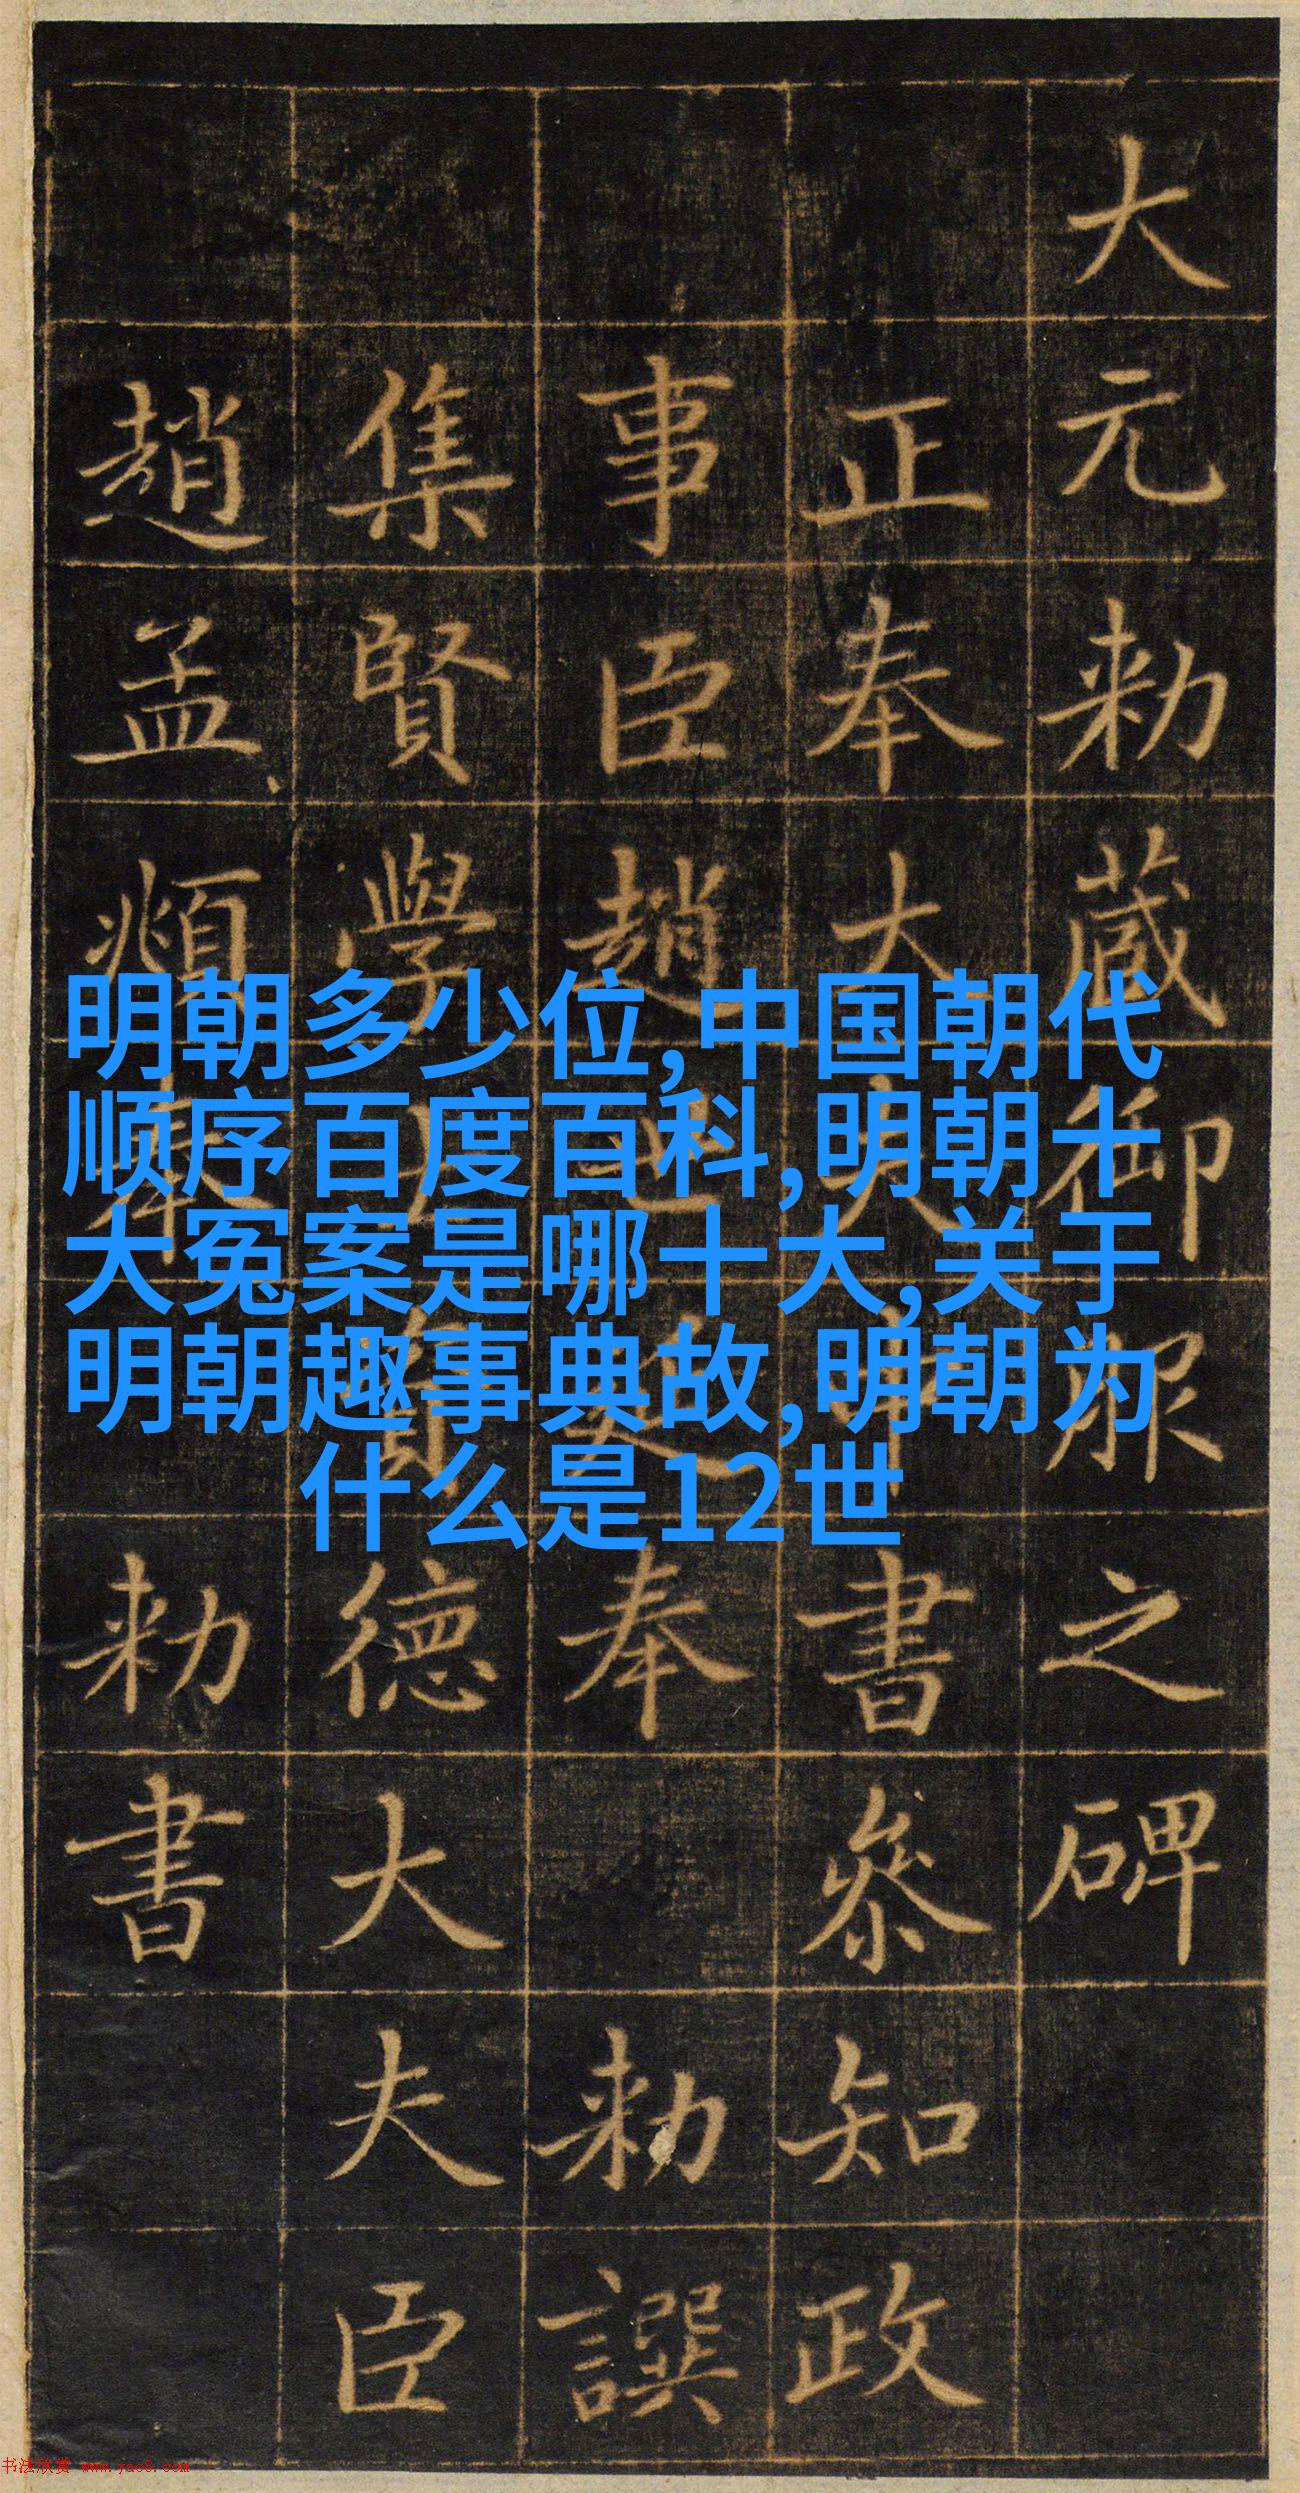 大元勑蔵御服之碑
正奉大夫中書叅知政
事臣趙世延奉勑譔
集賢學士資德大夫臣
趙孟頫奉勑書
明朝多少位,中国朝代
顺序百度百科,明朝十
大冤案是哪十大,关于
明朝趣事典故,明朝为
什么是12世
书法欣赏 www.yac8.com